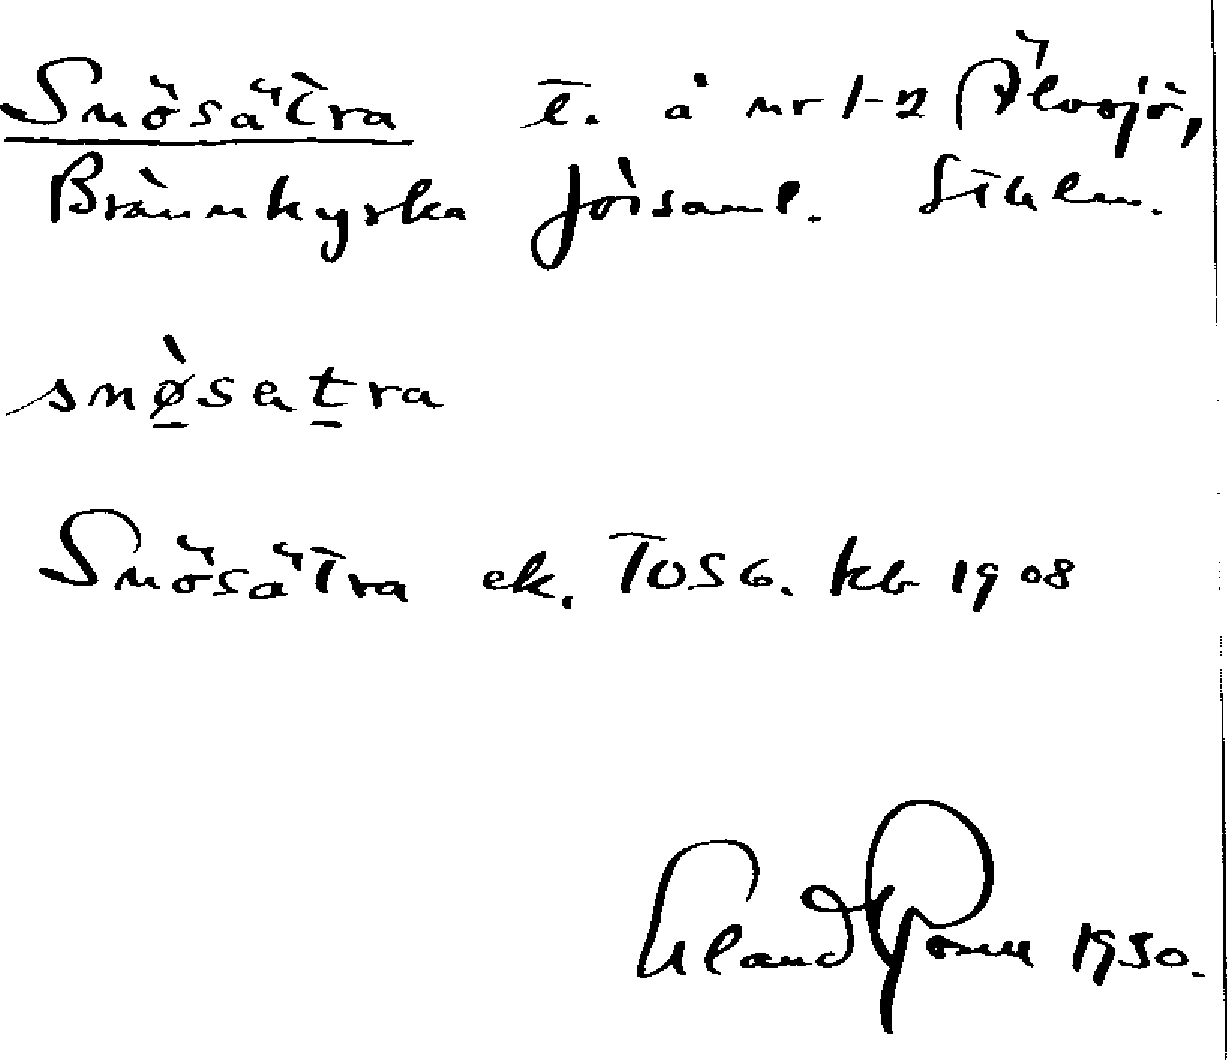 Snösätra t. å nr 1-2 Älvsjö,
Brännkyrka förs aml. Sthlm.
snø̀satra
Snösätra ek. TOSG. kb 1908
Erland Rosell 1950.